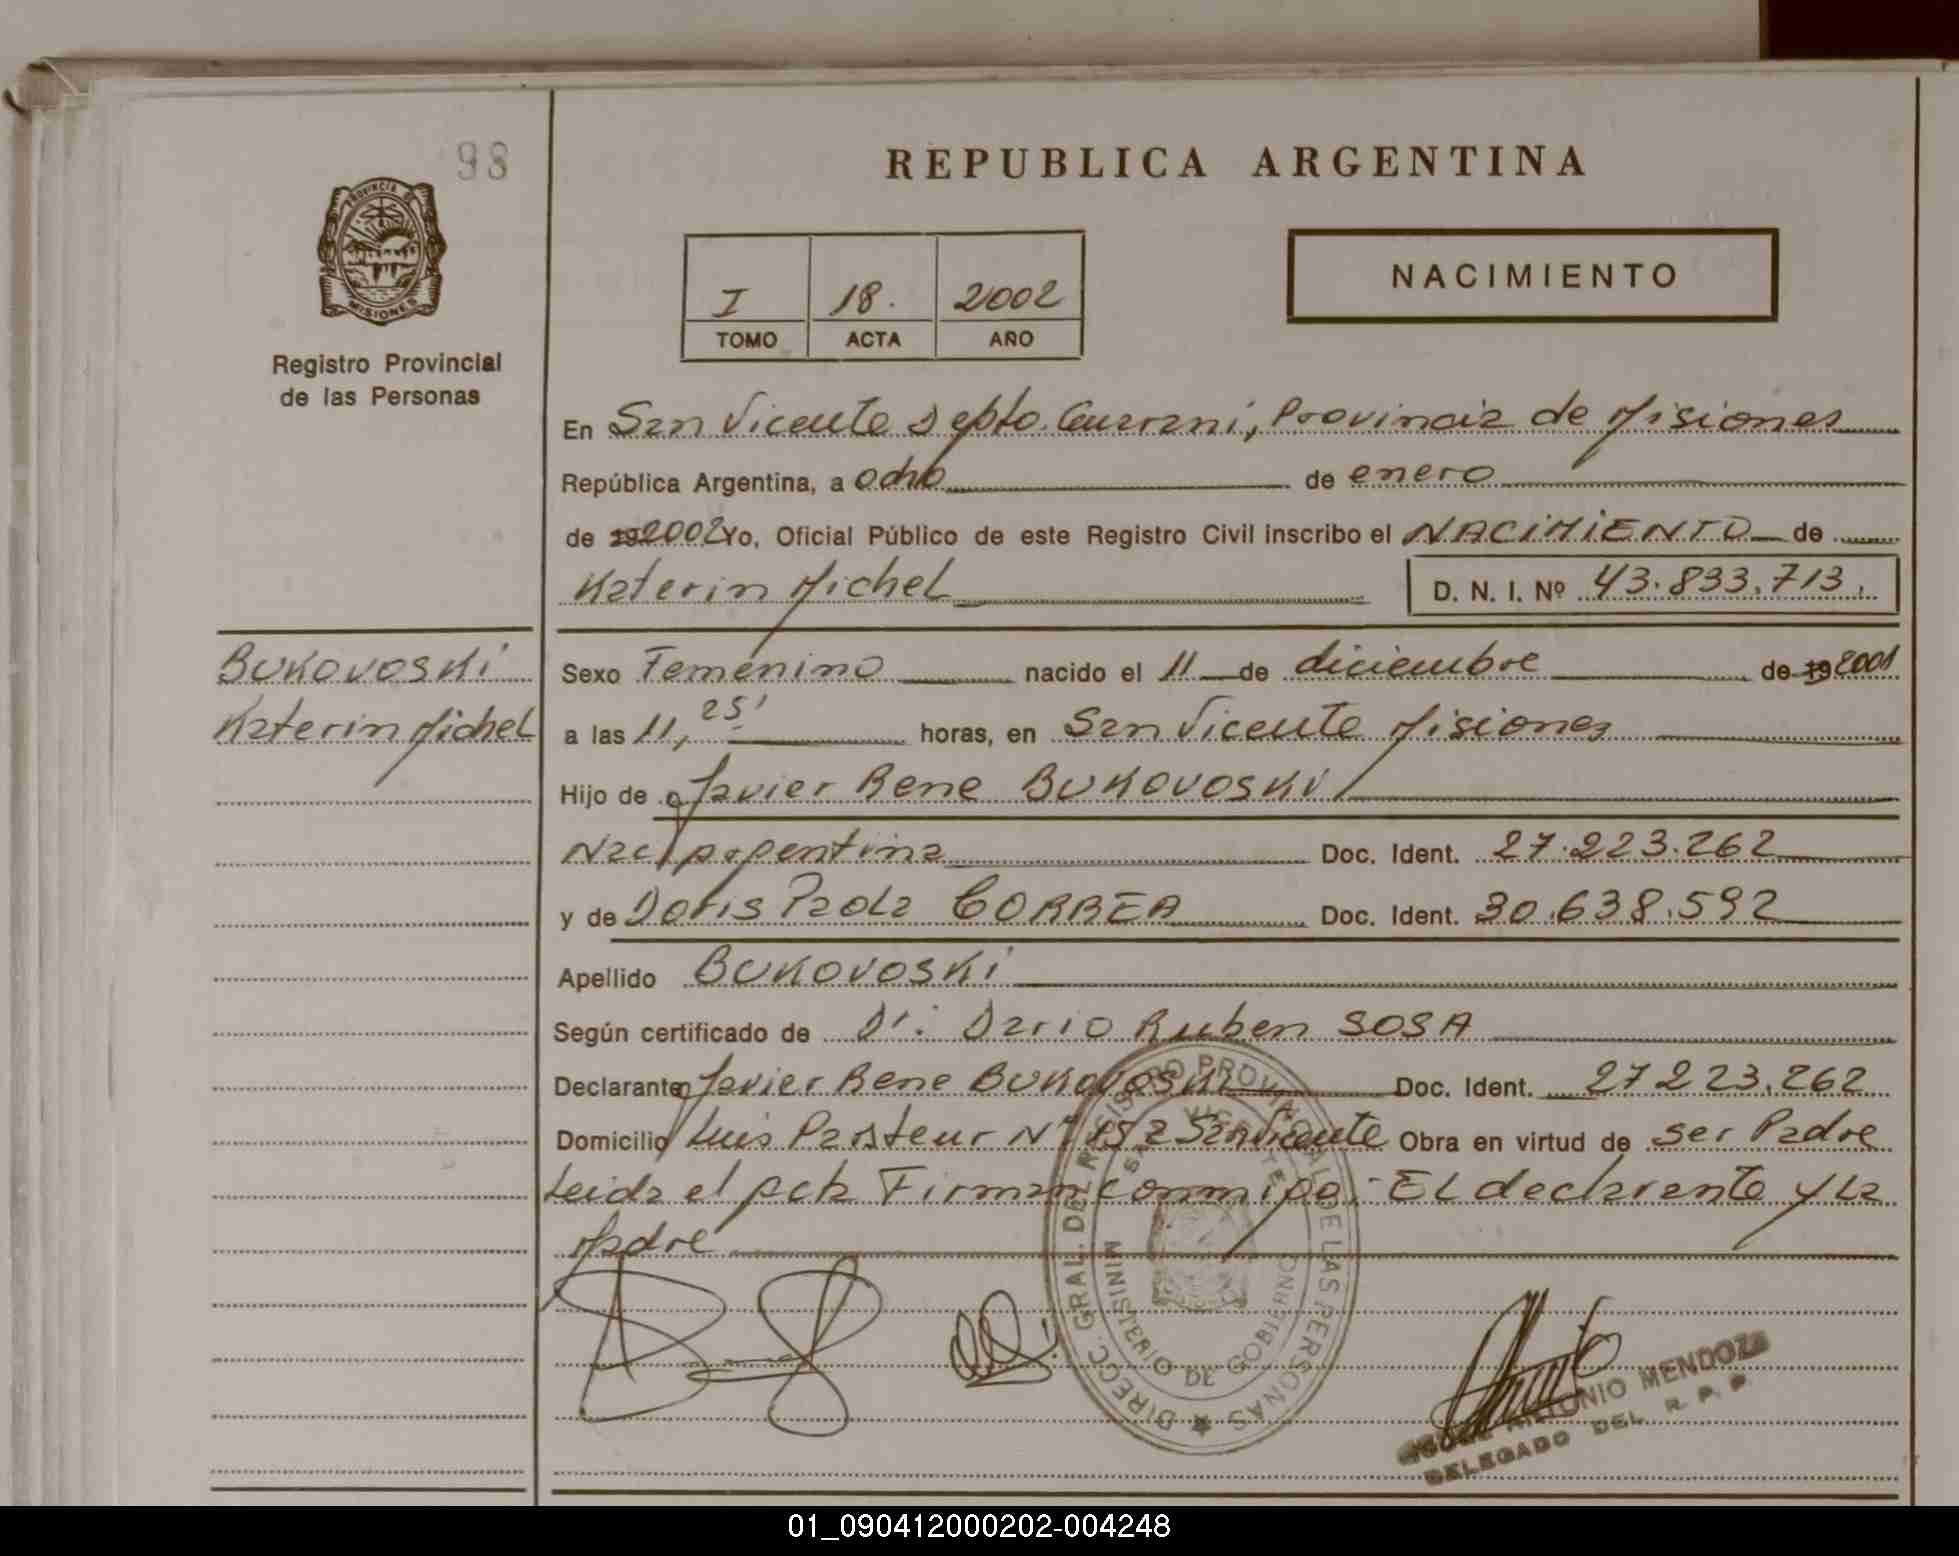 98
REPUBLICA ARGENTINA
PROVINCIA DE
MISIONES
Registro Provincial
de las Personas
I 18. 2002
TOMO ACTA AÑO
NACIMIENTO
En San Vicente Depto. Guarani, Provincia de Misiones
República Argentina, a ocho de enero
de 19 2002 Yo, Oficial Público de este Registro Civil inscribo el NACIMIENTO de
Katerin Michel D. N. I. Nº 43.833.713.
BUKOVOSKi
Katerin Michel
Sexo Femenino nacido el 11 de diciembre de 19 2001
a las 11, 25' horas, en San Vicente Misiones
Hijo de Javier Rene BUKOVOSKI
Nac Argentina Doc. Ident. 27.223.262
y de Doris Paola CORREA Doc. Ident. 30.638.592
Apellido BUKOVOSKi
Según certificado de Dr. Dario Ruben SOSA
Declarante Javier Rene BUKOVOSKI Doc. Ident. 27223.262
Domicilio Luis Pasteur Nº 152 San Vicente Obra en virtud de ser Padre
Leida el Acta Firman conmigo:- EL declarante y La
Madre
DIRECC. GRAL. DEL REGISTRO PROVINCIAL DE LAS PERSONAS
SAN VICENTE
MINISTERIO DE GOBIERNO
ANTONIO MENDOZA
DELEGADO DEL R. P. P.
01_090412000202-004248